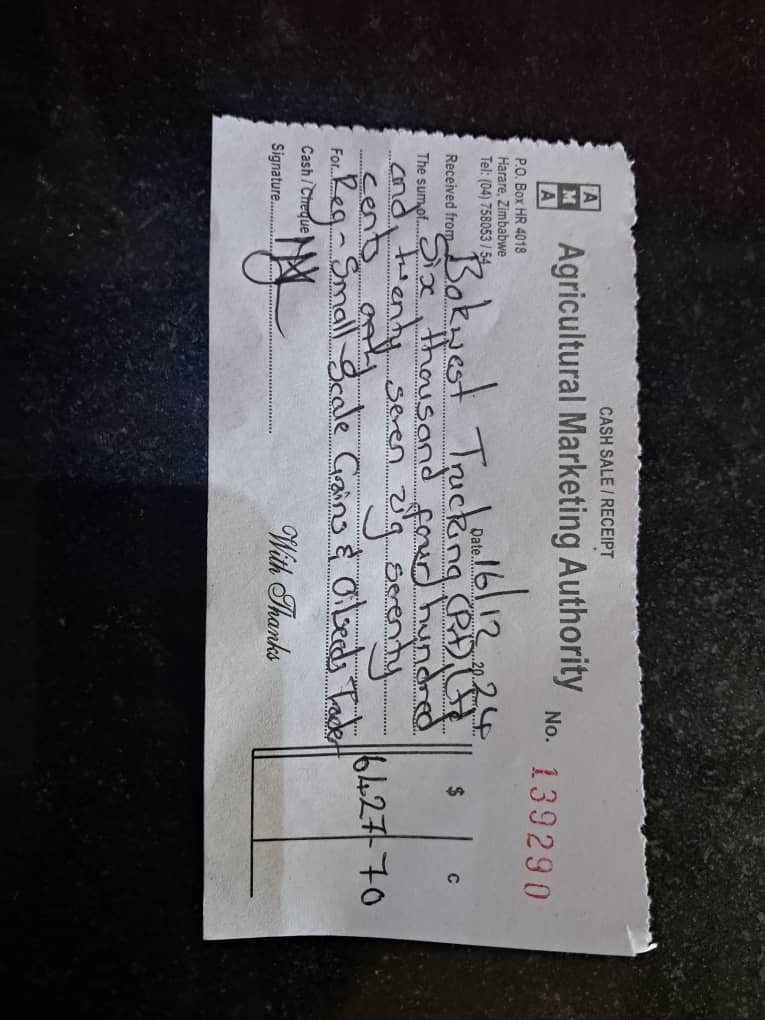 CASH SALE / RECEIPT
A
M
A
Agricultural Marketing Authority
No. 139290
P.O. Box HR 4018
Harare, Zimbabwe
Tel: (04) 758053 / 54
Date 16/12 2024
$ C
Received from Bokwest Trucking (Pvt) Ltd
The sum of Six thousand four hundred
and twenty seven zig seventy
cents only
For Reg - Small Scale Grains & Oilseeds Trader 6427-70
Cash / Cheque
Signature
With Thanks